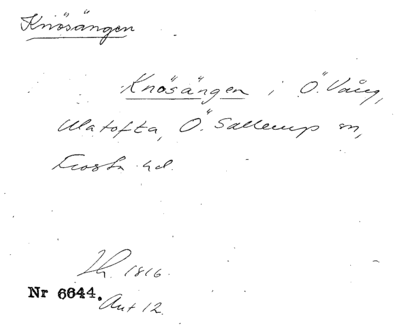 Knösängen
Knösängen i Ö. Vång,
Ulatofta, Ö. Sallerup sn,
Frosta hd.
Lh. 1816.
Nr 6644. Avt 12.